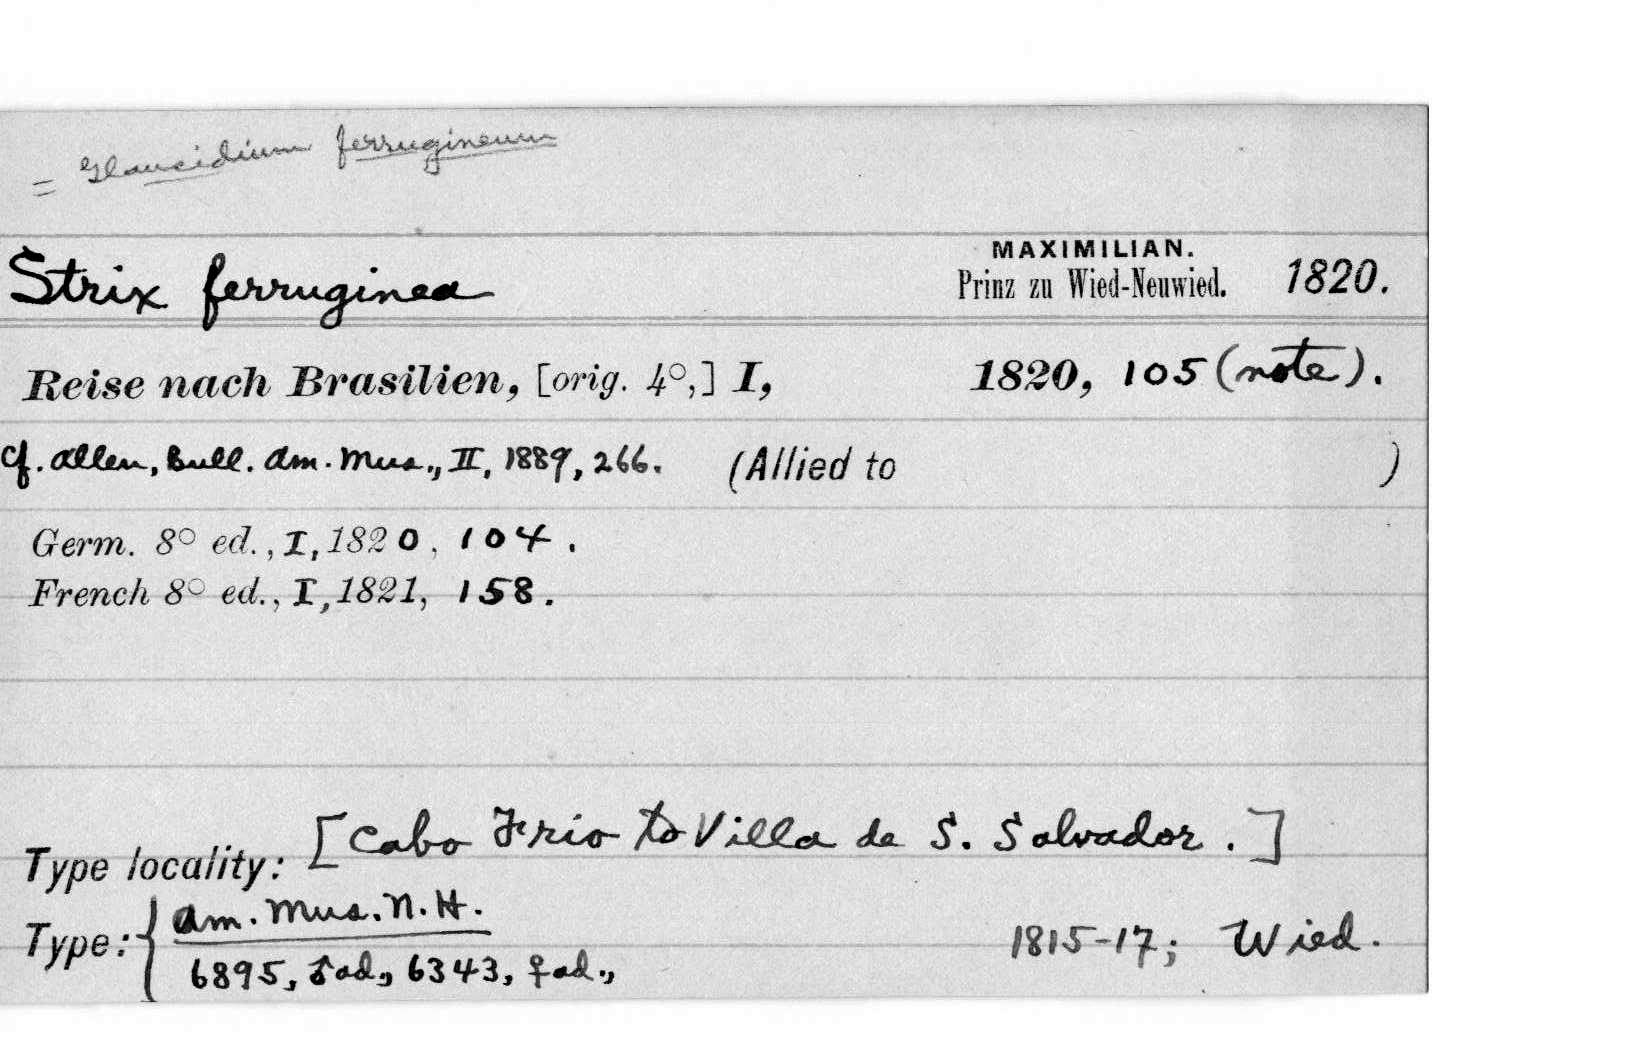 = Glaucidium ferrugineum
Strix ferruginea MAXIMILIAN. Prinz zu Wied-Neuwied. 1820.
Reise nach Brasilien, [orig. 4°,] I, 1820, 105 (note).
Cf. Allen, Bull. Am. Mus., II, 1889, 266. (Allied to )
Germ. 8° ed., I, 1820, 104.
French 8° ed., I, 1821, 158.
Type locality: [Cabo Frio to Villa de S. Salvador.]
Type: { Am. Mus. N. H. 1815-17; Wied.
6895, ♂ ad., 6343, ♀ ad.,